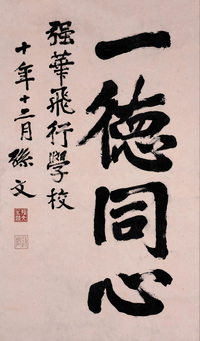 一德同心
强華飛行學校
十年十二月 孫文